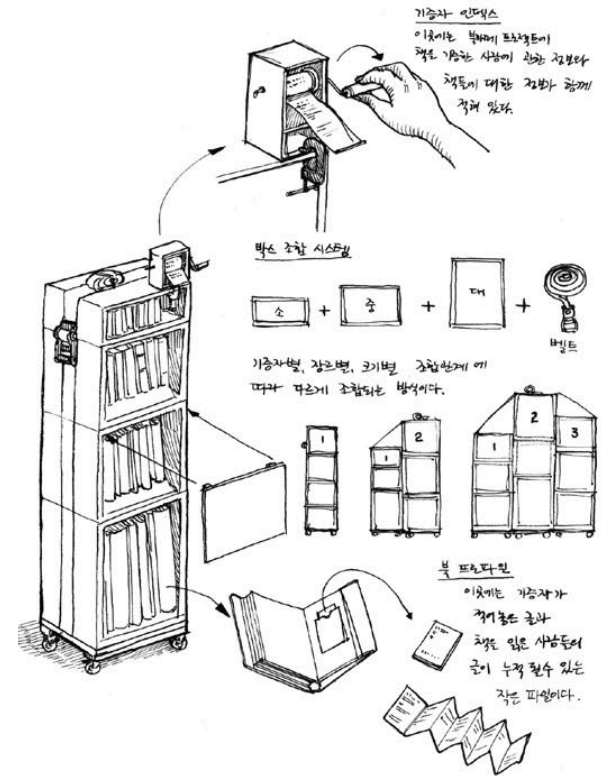 기증자 인덱스
이곳에는 북마페 프로젝트에
책을 기증한 사람에 관한 정보와
책들에 대한 정보가 함께
적혀 있다.
박스 조합 시스템
소 + 중 + 대 +
벨트
기증자별, 장르별, 크기별 조합관계에
따라 다르게 조합되는 방식이다.
1
1 2
1 2 3
북 프로파일
이곳에는 기증자가
적어놓은 글과
책을 읽은 사람들의
글이 누적 될수 있는
작은 파일이다.